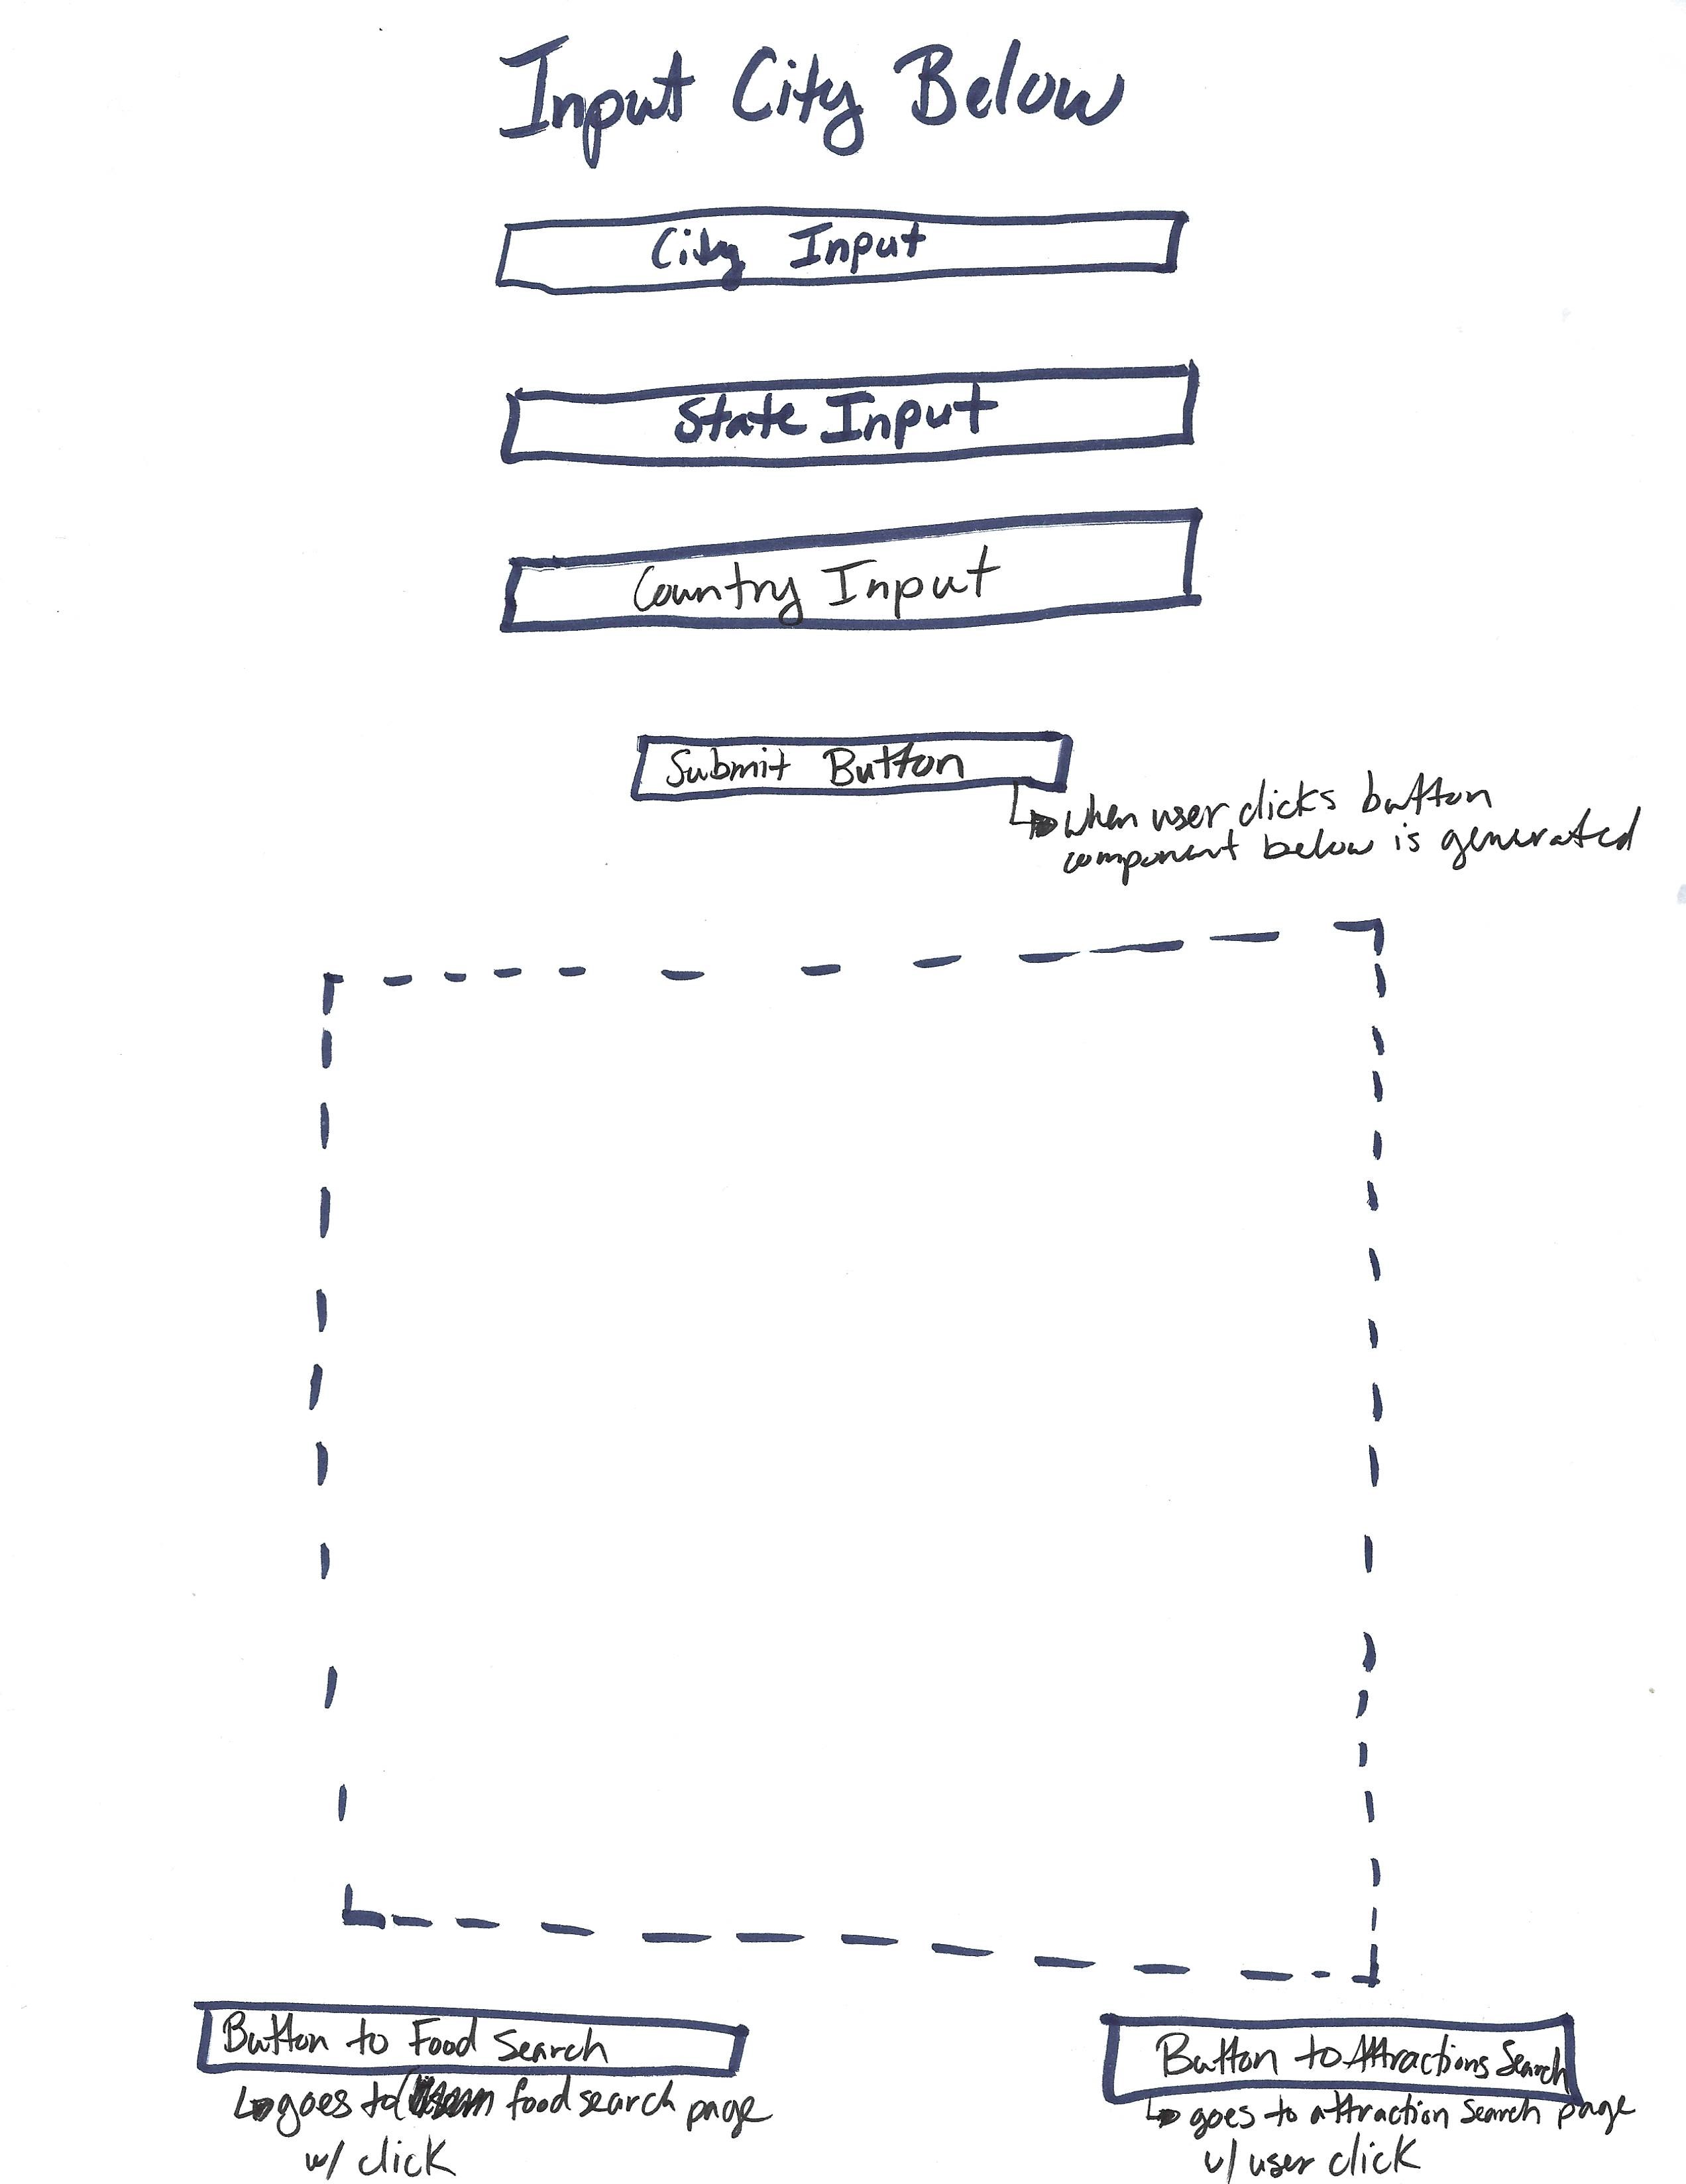 Input City Below
City Input
State Input
Country Input
Submit Button
when user clicks button
component below is generated
Button to Food Search
goes to food search page
w/ click
Button to Attractions Search
goes to attraction search page
w/ user click